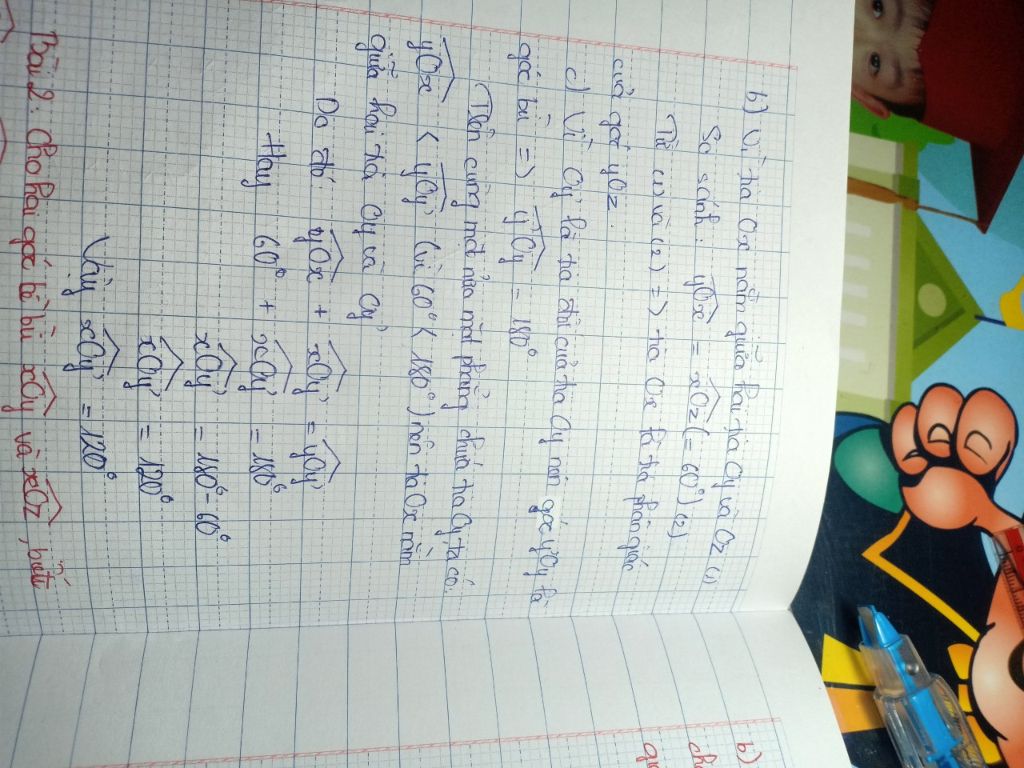 b) Vì tia Ox nằm giữa hai tia Oy và Oz (1)
So sánh: yOx = xOz (= 60°) (2)
Từ (1) và (2) => tia Ox là tia phân giác
của góc yOz.
c) Vì Oy' là tia đối của tia Oy nên góc y'Oy là
góc bù => y'Oy = 180°
Trên cùng một nửa mặt phẳng chứa tia Oy ta có:
yOx < yOy' (vì 60° < 180°) nên tia Ox nằm
giữa hai tia Oy và Oy'
Do đó: yOx + xOy' = yOy'
Hay 60° + xOy' = 180°
xOy' = 180° - 60°
xOy' = 120°
Vậy xOy' = 120°
Bài 2: Cho hai góc kề bù xOy và xOz, biết
b)